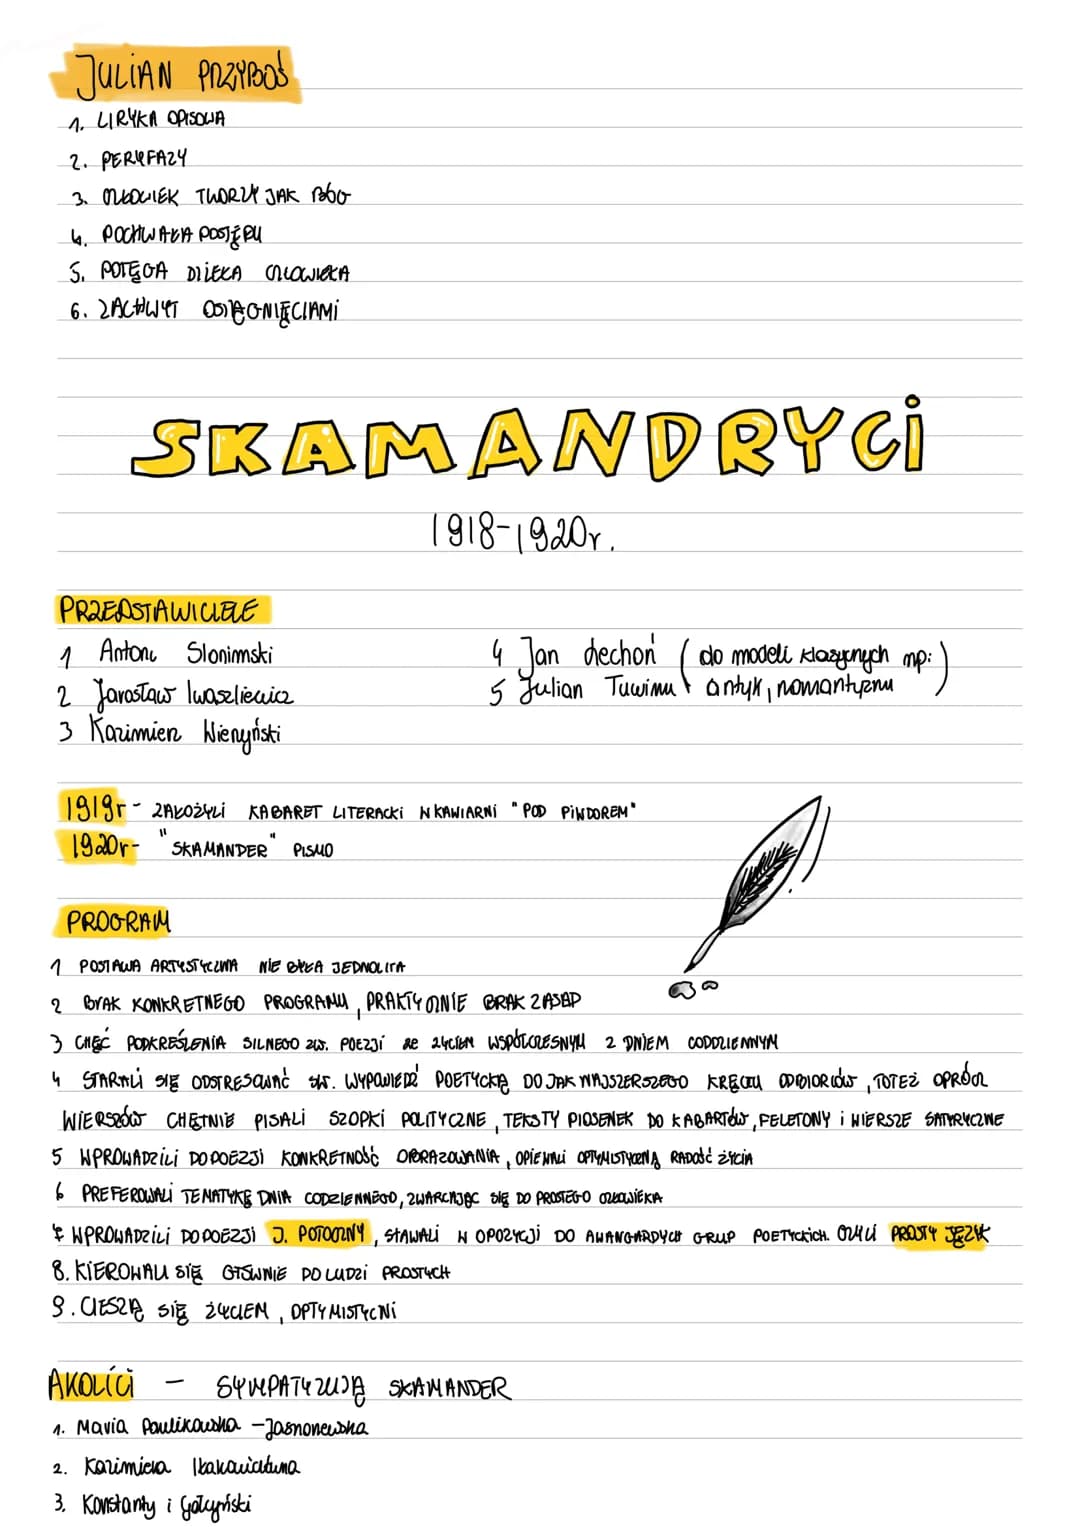 JULIAN PRZYBOŚ
1. LIRYKA OPISOWA
2. PERYFAZY
3. CZŁOWIEK TWORZY JAK BÓG
4. POCHWAŁA POSTĘPU
5. POTĘGA DZIEŁA CZŁOWIEKA
6. ZACHWYT OSIĄGNIĘCIAMI
SKAMANDRYCI
1918-1920r.
PRZEDSTAWICIELE
1 Antoni Slonimski
2 Jarosław Iwaszkiewicz
3 Kazimierz Wierzyński
4 Jan Lechoń ( do modeli klasycznych np:
5 Julian Tuwim antyk, romantyzm )
1919r - ZAŁOŻYLI KABARET LITERACKI W KAWIARNI "POD PIKADOREM"
1920r- "SKAMANDER" PISMO
PROGRAM
1 POSTAWA ARTYSTYCZNA NIE BYŁA JEDNOLITA
2 BRAK KONKRETNEGO PROGRAMU, PRAKTYCZNIE BRAK ZASAD
3 CHĘĆ PODKREŚLENIA SILNEGO ZW. POEZJI ZE ŻYCIEM WSPÓŁCZESNYM Z DNIEM CODZIENNYM
4 STARALI SIĘ WYPOWIEDŹ POETYCKĄ DO JAK NAJSZERSZEGO KRĘGU ODBIORCÓW, TOTEŻ OPRÓCZ
WIERSZÓW CHĘTNIE PISALI SZOPKI POLITYCZNE, TEKSTY PIOSENEK DO KABARTÓW, FELETONY i WIERSZE SATYRYCZNE
5 WPROWADZILI DO POEZJI KONKRETNOŚĆ OBRAZOWANIA, OPIEWALI OPTYMISTYCZNĄ RADOŚĆ ŻYCIA
6 PREFEROWALI TEMATYKĘ DNIA CODZIENNEGO, ZWRACAJĄC SIĘ DO PROSTEGO CZŁOWIEKA
7 WPROWADZILI DO POEZJI J. POTOCZNY, STAWALI W OPOZYCJI DO AWANGARDYCH GRUP POETYCKICH. CZYLI PROSTY JĘZYK
8. KIEROWALI SIĘ GŁÓWNIE DO LUDZI PROSTYCH
9. CIESZĄ SIĘ ŻYCIEM, OPTYMISTYCNI
AKOLICI - SYMPATYZUJĄ SKAMANDER
1. Maria Pawlikowska - Jasnorzewska
2. Kazimiera Iłłakowiczówna
3. Konstanty i Gałczyński